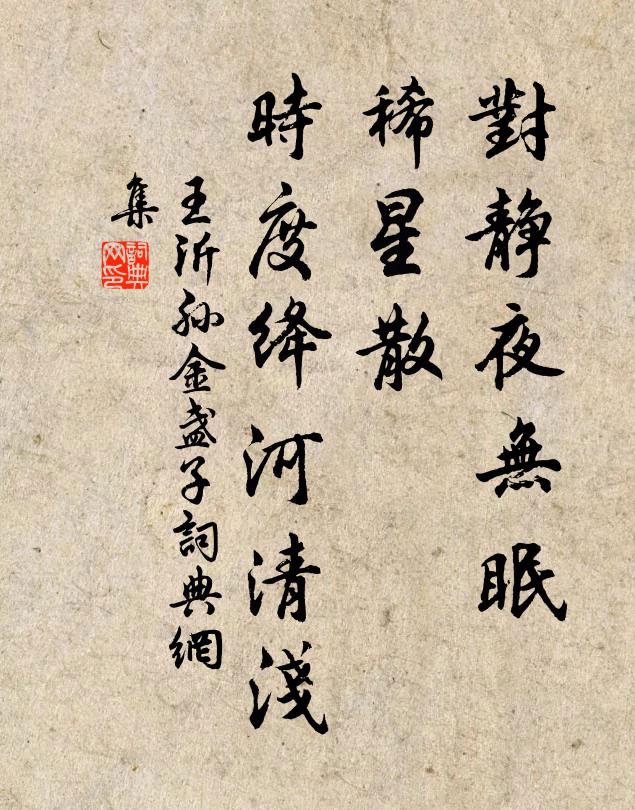 對靜夜無眠
稀星散
時度絳河清淺
王沂孙金盏子詞典網
集
詞典
网印